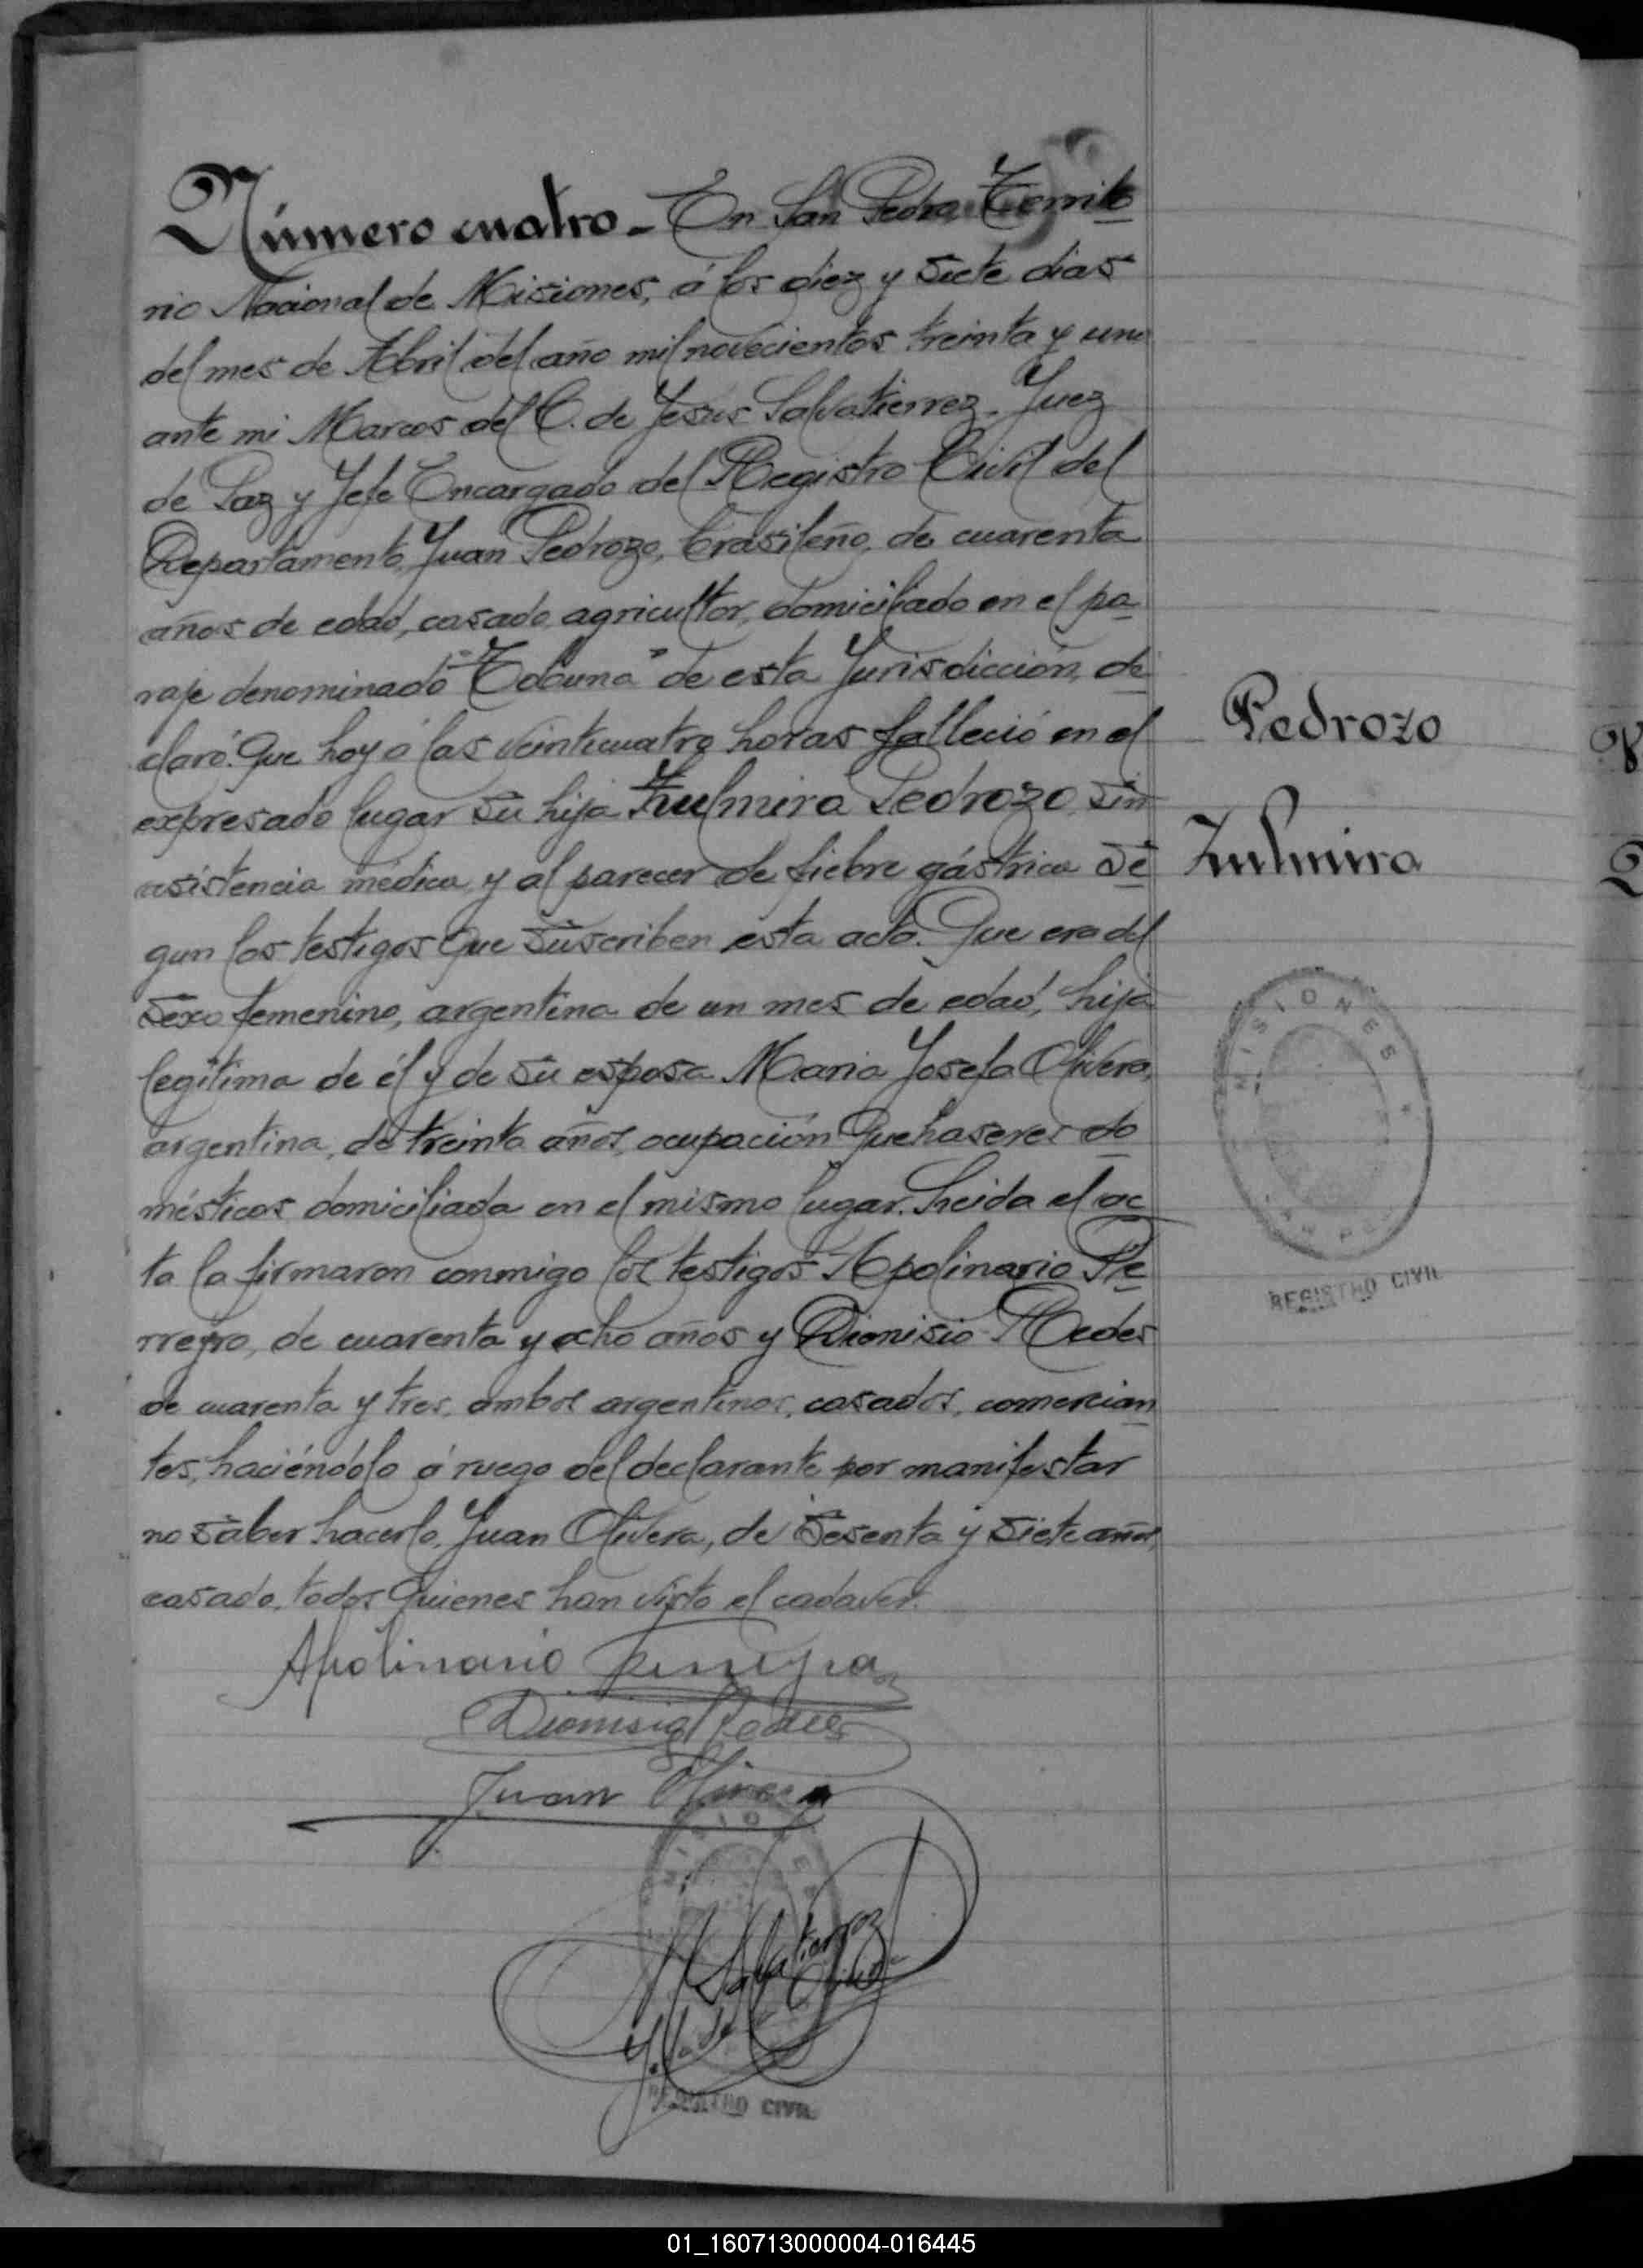 Número cuatro - En San Pedro, Territo
rio Nacional de Misiones, á los diez y siete dias
del mes de Abril del año mil novecientos treinta y uno
ante mi Marcos del C. de Jesus Salvatierrez, Juez
de Paz y Jefe Encargado del Registro Civil del
Departamento, Juan Pedrozo, brasileño, de cuarenta
años de edad, casado, agricultor, domiciliado en el pa
raje denominado "Tobuna" de esta Jurisdicción, de
claró: Que hoy á las veinticuatro horas falleció en el
expresado lugar su hija Zulmira Pedrozo, sin
asistencia médica, y al parecer de fiebre gástrica se
gun los testigos que suscriben esta acta. Que era del
sexo femenino, argentina de un mes de edad, hija
legitima de él y de su esposa Maria Josefa Olivera,
argentina, de treinta años, ocupación quehaseres do
mésticos domiciliada en el mismo lugar. Leida el ac
ta la firmaron conmigo los testigos Apolinario Pe
rreyro, de cuarenta y ocho años y Dionisio Redes
de cuarenta y tres, ambos argentinos, casados, comercian
tes, haciéndolo á ruego del declarante por manifestar
no saber hacerlo, Juan Olivera, de sesenta y siete años,
casado, todos quienes han visto el cadaver.
Pedrozo
Zulmira
MISIONES
REGISTRO CIVIL
Apolinario
Dionisio
Juan Olivera
Salvatierrez
REGISTRO CIVIL
01_160713000004-016445